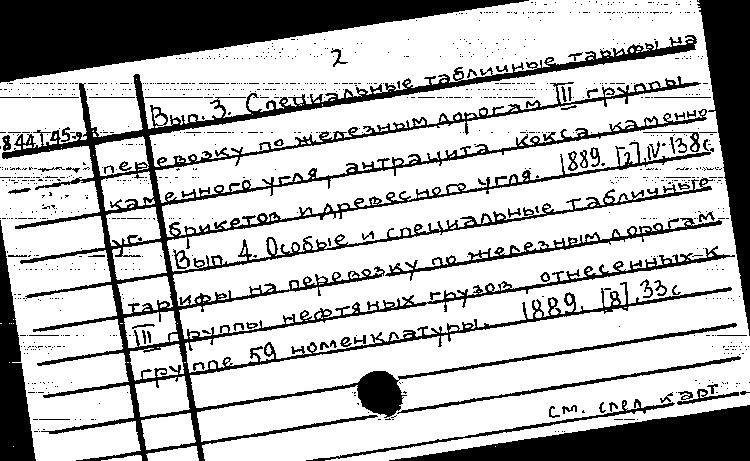 2
Вып. 3. Специальные табличные тарифы на
перевозку по железным дорогам III группы
каменного угля, антрацита, кокса, каменно-
уг. брикетов и древесного угля. 1889. [2], IV, 138 с.
Вып. 4. Особые и специальные табличные
тарифы на перевозку по железным дорогам
III группы нефтяных грузов, отнесенных к
группе 59 номенклатуры. 1889. [8], 33 с.
см. след. карт.